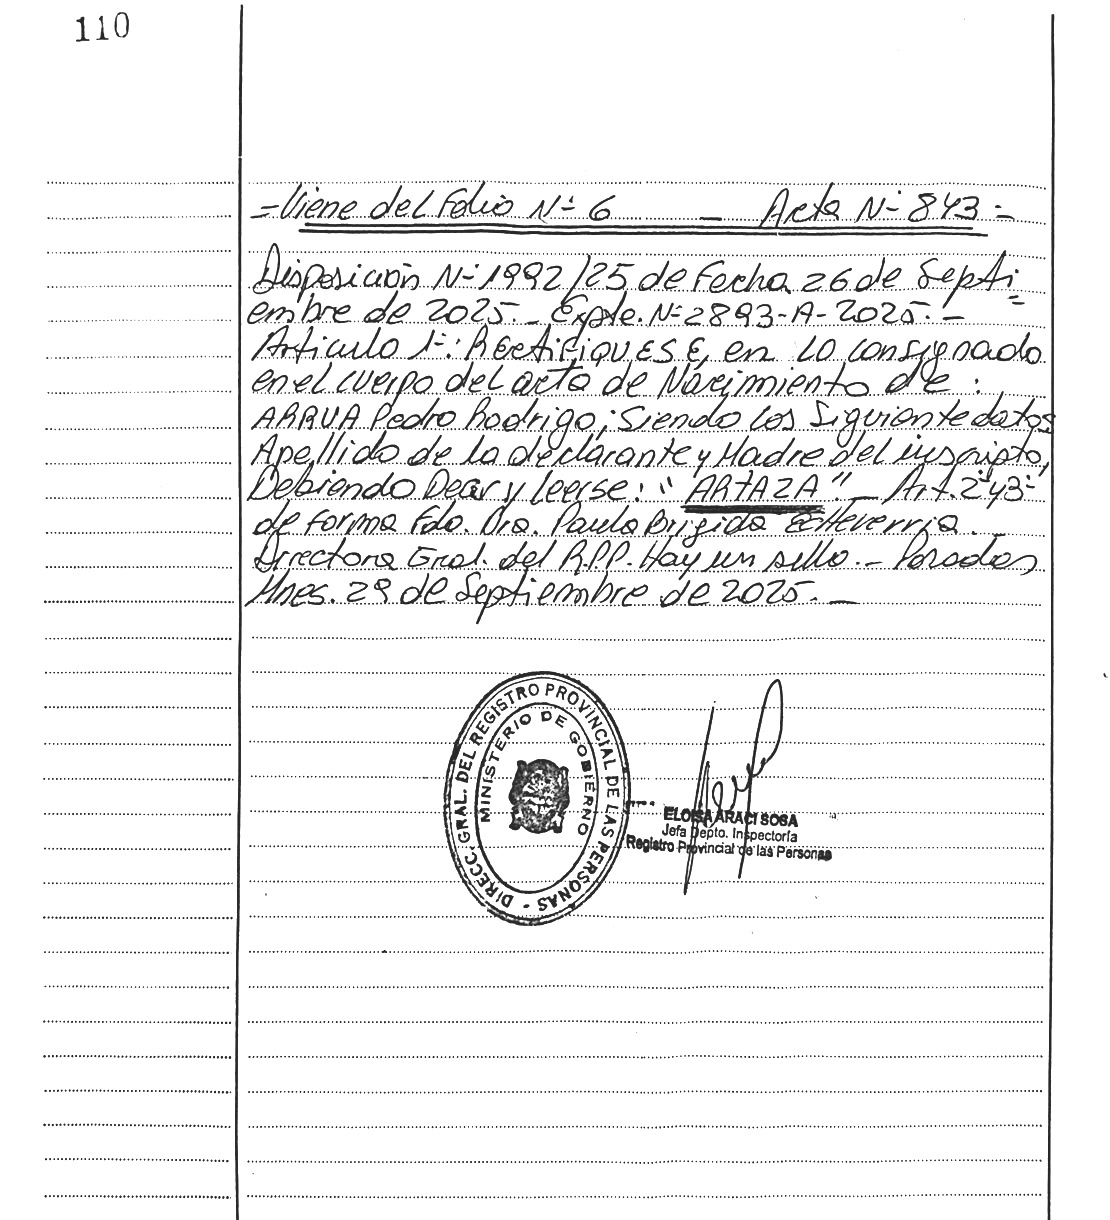 110
=Viene del Folio Nº 6 — Acta Nº 843=
Disposición Nº 1992/25 de Fecha 26 de Septi=
embre de 2025.- Expte. Nº 2893-A-2025.-
Artículo 1º: RECtIFIQUESE, en lo consignado
en el cuerpo del acta de Nacimiento de:
ARRUA Pedro Rodrigo; Siendo los Siguiente datos
Apellido de la declarante y Madre del inscripto,
Debiendo Decir y leerse: "ARTAZA" - Art. 2º y 3º
de forma Fdo. Dra. Paula Brigida Echeverria.
Directora Gral. del R.P.P. Hay un sello.- Posadas
Mnes. 29 de Septiembre de 2025.-
DIRECC. GRAL. DEL REGISTRO PROVINCIAL DE LAS PERSONAS -
MINISTERIO DE GOBIERNO
ELOISA ARACI SOSA
Jefa Depto. Inspectoría
Registro Provincial de las Personas